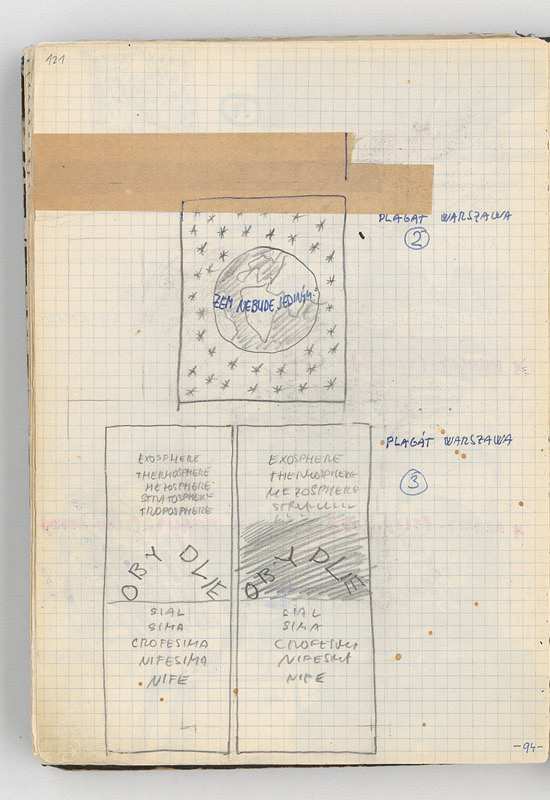 121
PLAGÁT WARSZAWA
2
ZEM NEBUDE JEDINÝM
PLAGÁT WARSZAWA
3
EXOSPHERE
THERMOSPHERE
MEZOSPHERE
STRATOSPHERE
TROPOSPHERE
OBYDLIE
SIAL
SIMA
CROFESIMA
NIFESIMA
NIFE
EXOSPHERE
THERMOSPHERE
MEZOSPHERE
OBYDLIE
SIAL
SIMA
CROFESIMA
NIFESIMA
NIFE
-94-